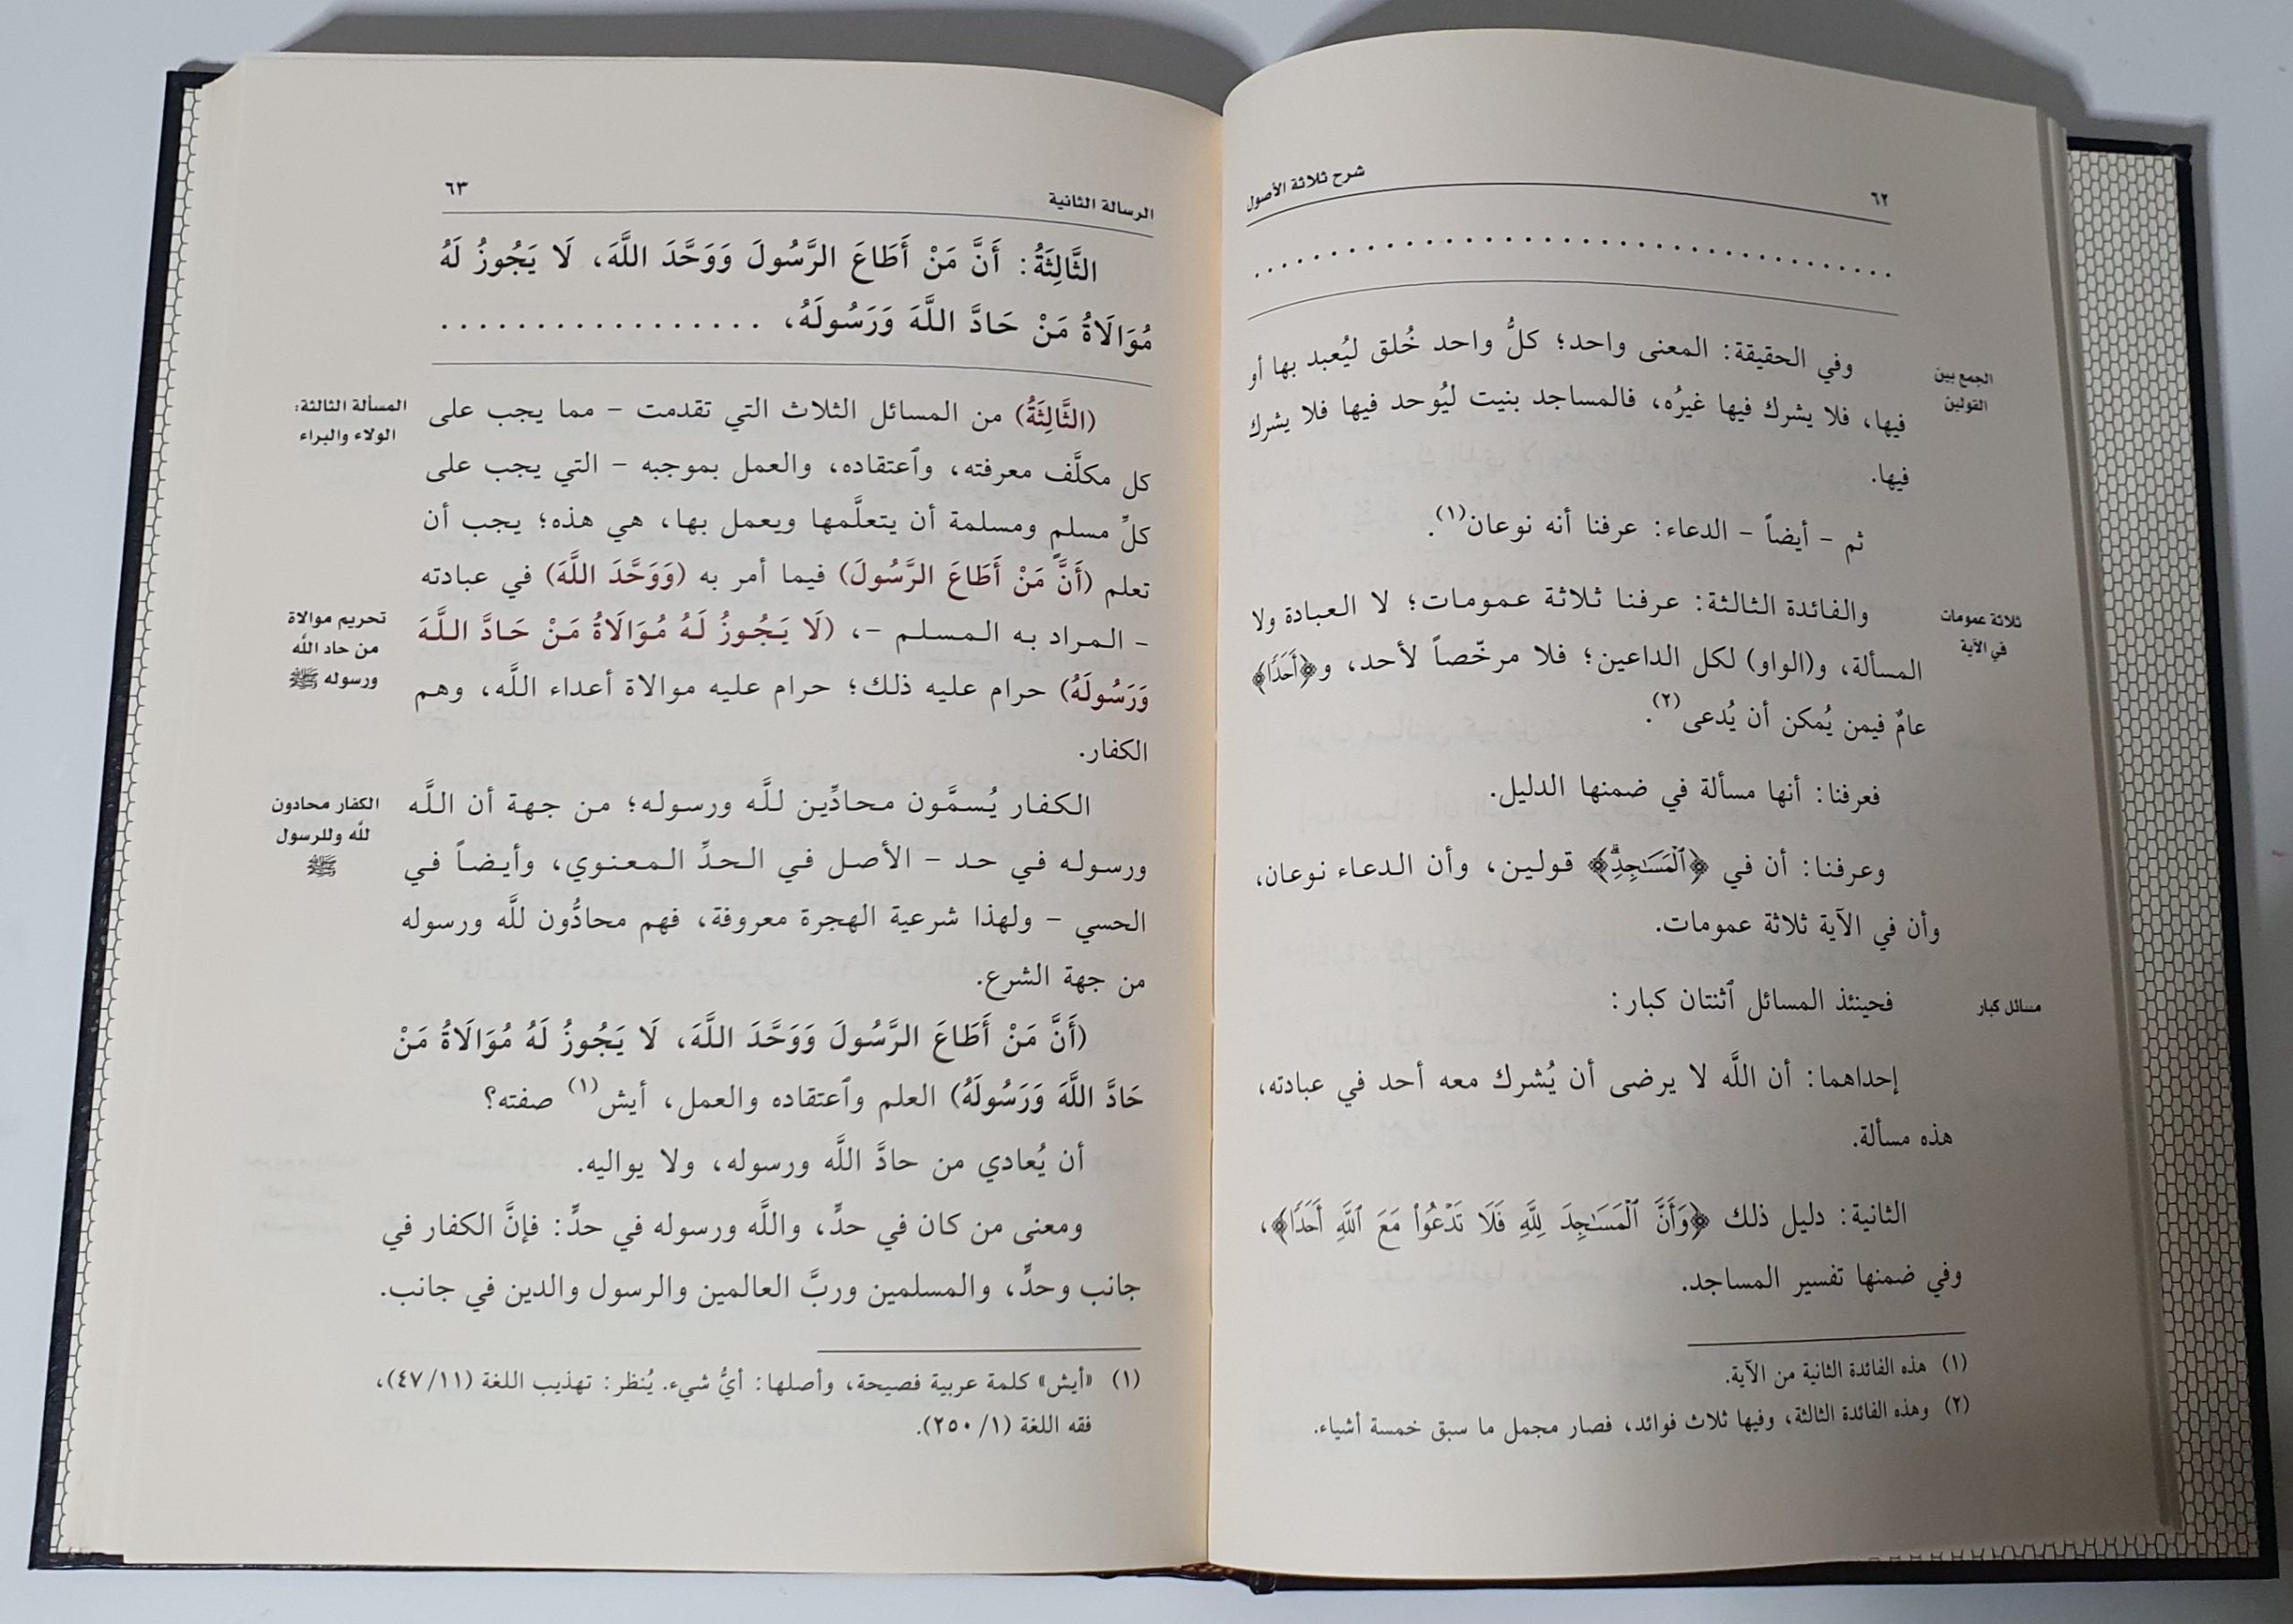 ٦٢
شرح ثلاثة الأصول
........................................
وفي الحقيقة: المعنى واحد؛ كلُّ واحد خُلق ليُعبد بها أو
فيها، فلا يشرك فيها غيرُه، فالمساجد بنيت ليُوحد فيها فلا يشرك
فيها.
الجمع بين
القولين
ثم – أيضاً – الدعاء: عرفنا أنه نوعان(١).
والفائدة الثالثة: عرفنا ثلاثة عمومات؛ لا العبادة ولا
المسألة، و(الواو) لكل الداعين؛ فلا مرخّصاً لأحد، و﴿أَحَدًا﴾
عامٌ فيمن يُمكن أن يُدعى(٢).
ثلاثة عمومات
في الآية
فعرفنا: أنها مسألة في ضمنها الدليل.
وعرفنا: أن في ﴿ٱلْمَسَـٰجِدِۗ﴾ قولين، وأن الدعاء نوعان،
وأن في الآية ثلاثة عمومات.
فحينئذ المسائل ٱثنتان كبار:
مسائل كبار
إحداهما: أن اللَّه لا يرضى أن يُشرك معه أحد في عبادته،
هذه مسألة.
الثانية: دليل ذلك ﴿وَأَنَّ ٱلْمَسَـٰجِدَ لِلَّهِ فَلَا تَدْعُوا۟ مَعَ ٱللَّهِ أَحَدًا﴾،
وفي ضمنها تفسير المساجد.
(١) هذه الفائدة الثانية من الآية.
(٢) وهذه الفائدة الثالثة، وفيها ثلاث فوائد، فصار مجمل ما سبق خمسة أشياء.
الرسالة الثانية
٦٣
الثَّالِثَةُ: أَنَّ مَنْ أَطَاعَ الرَّسُولَ وَوَحَّدَ اللَّهَ، لَا يَجُوزُ لَهُ
مُوَالَاةُ مَنْ حَادَّ اللَّهَ وَرَسُولَهُ، ..................
(الثَّالِثَةُ) من المسائل الثلاث التي تقدمت – مما يجب على
كل مكلَّف معرفته، وٱعتقاده، والعمل بموجبه – التي يجب على
كلِّ مسلمٍ ومسلمة أن يتعلَّمها ويعمل بها، هي هذه؛ يجب أن
تعلم (أَنَّ مَنْ أَطَاعَ الرَّسُولَ) فيما أمر به (وَوَحَّدَ اللَّهَ) في عبادته
– المراد به المسلم –، (لَا يَجُوزُ لَهُ مُوَالَاةُ مَنْ حَادَّ اللَّهَ
وَرَسُولَهُ) حرام عليه ذلك؛ حرام عليه موالاة أعداء اللَّه، وهم
الكفار.
المسألة الثالثة:
الولاء والبراء
تحريم موالاة
من حاد الله
ورسوله ﷺ
الكفار يُسمَّون محادِّين للَّه ورسوله؛ من جهة أن اللَّه
ورسوله في حد – الأصل في الحدِّ المعنوي، وأيضاً في
الحسي – ولهذا شرعية الهجرة معروفة، فهم محادُّون للَّه ورسوله
من جهة الشرع.
الكفار محادون
لله وللرسول
ﷺ
(أَنَّ مَنْ أَطَاعَ الرَّسُولَ وَوَحَّدَ اللَّهَ، لَا يَجُوزُ لَهُ مُوَالَاةُ مَنْ
حَادَّ اللَّهَ وَرَسُولَهُ) العلم وٱعتقاده والعمل، أيش(١) صفته؟
أن يُعادي من حادَّ اللَّه ورسوله، ولا يواليه.
ومعنى من كان في حدٍّ، واللَّه ورسوله في حدٍّ: فإنَّ الكفار في
جانب وحدٍّ، والمسلمين وربَّ العالمين والرسول والدين في جانب.
(١) «أيش» كلمة عربية فصيحة، وأصلها: أيُّ شيء. يُنظر: تهذيب اللغة (٤٧/١١)،
فقه اللغة (٢٥٠/١).